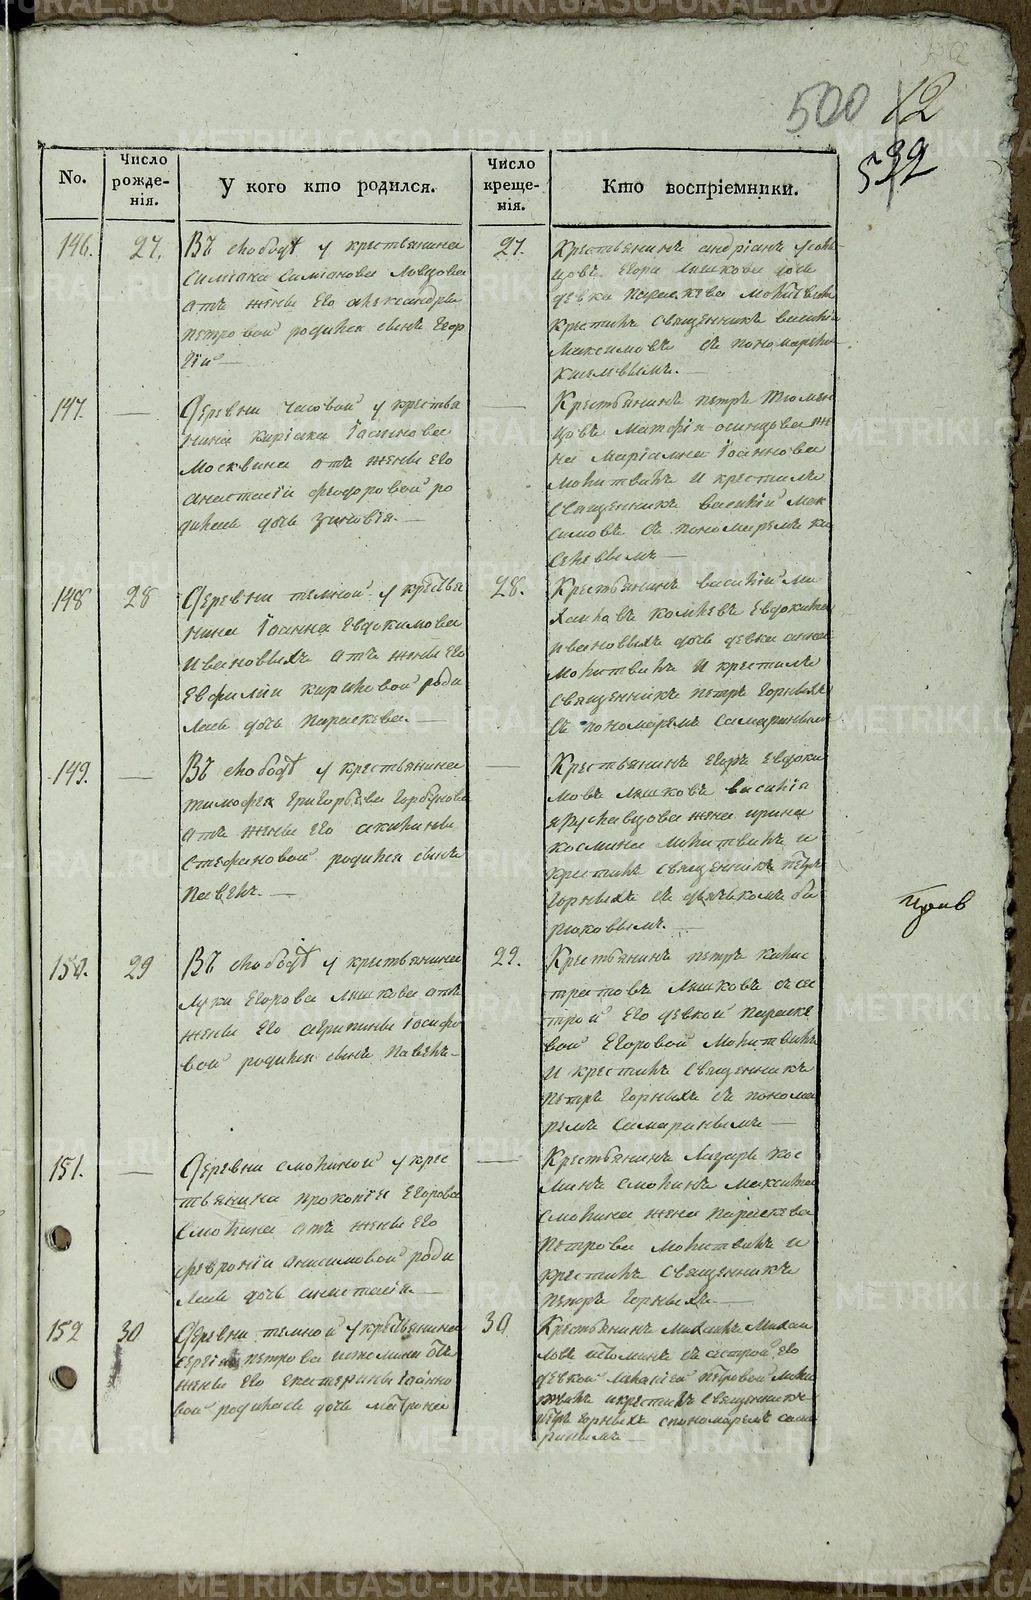 500 12
532
No.
Число рожде-нія.
У кого кто родился.
Число креще-нія.
Кто воспріемники.
146.
27.
Въ слободѣ у крестьянина
Симіона Симіонова
отъ жены его александры
петровой родился сынъ Егор
ій —
27.
Крестьянинъ андріянъ
Егора лишкова дочь
девка параскева молитвилъ
крестилъ священникъ василій
Максимовъ съ пономаремъ
Киселевымъ. —
147.
—
Деревни часовой у крестья
нина киріака іоаннова
Москвина отъ жены его
анастасіи феодоровой ро
дилась дочь зиновія. —
—
Крестьянинъ петръ тюмен
цовъ матфія осинцова же
на маріамна іоаннова
молитвилъ и крестилъ
священникъ василій мак
симовъ съ пономаремъ ки
селевымъ —
148
28
Деревни темной у крестья
нина іоанна Евдокимова
ивановыхъ отъ жены его
Евфиміи кириловой роди
лась дочь параскева. —
28.
Крестьянинъ василій ми
хаиловъ Евдокима
ивановыхъ дочь девка анна
молитвилъ и крестилъ
священникъ петръ Горныхъ
съ пономаремъ Самаринымъ
149.
—
Въ слободѣ у крестьянина
тимофея григорьева горбунова
отъ жены его акилины
стефановой родился сынъ
павелъ. —
—
Крестьянинъ Егоръ Евдоки
мовъ лишковъ василія
ярославцова жена ирина
космина молитвилъ и
крестилъ священникъ петръ
Горныхъ съ дьячькомъ би
рюковымъ. —
150.
29
Въ слободѣ у крестьянина
луки Егорова лишкова отъ
жены его агрипины іосифо
вой родился сынъ павелъ —
29.
Крестьянинъ петръ калис
тратовъ лишковъ съ се
строй его девкой параске
вой Егоровой молитвилъ
и крестилъ священникъ
петръ Горныхъ съ понома
ремъ Самаринымъ —
151.
—
Деревни смолиной у крес
тьянина прокопія Егорова
Смолина отъ жены его
февроніи анисимовой роди
лась дочь анастасія. —
—
Крестьянинъ лазарь кос
минъ смолинъ максима
смолина жена параскева
петрова молитвилъ и
крестилъ священникъ
петръ Горныхъ —
152
30
Деревни темной у крестьянина
сергія петрова истомина отъ
жены его екатерины іоанно
вой родилась дочь матрона
30
Крестьянинъ михаилъ михаи
ловъ истоминъ съ сестрой его
девкой петровой моли
твилъ и крестилъ священникъ
петръ Горныхъ с пономаремъ сама
ринымъ —
METRIKI.GASO-URAL.RU